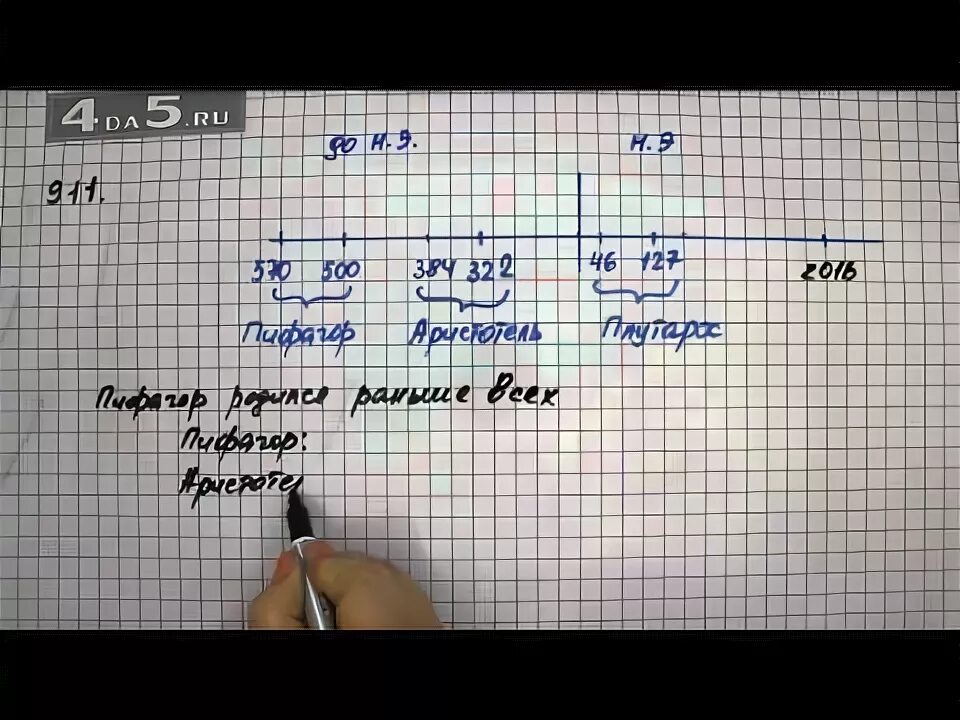 4.DA5.RU
до н.э. н.э
911.
570 500 384 322 46 127 2016
Пифагор Аристотель Плутарх
Пифагор родился раньше всех
Пифагор:
Аристоте